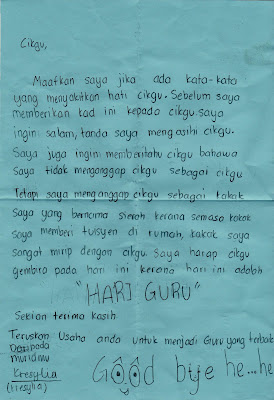 Cikgu,
Maafkan saya jika ada kata-kata
yang menyakitkan hati cikgu. Sebelum saya
memberikan kad ini kepada cikgu.saya
ingin salam, tanda saya mengasihi cikgu.
Saya juga ingin memberitahu cikgu bahawa
saya tidak menganggap cikgu sebagai cikgu
Tetapi saya menganggap cikgu sebagai kakak
saya yang bernama Sherah kerana semasa kakak
saya memberi tuisyen di rumah, kakak saya
sangat mirip dengan cikgu. Saya harap cikgu
gembira pada hari ini kerana hari ini adalah
"HARI GURU"
Sekian terima kasih
Teruskan Usaha anda untuk menjadi Guru yang terbaik
Daripada
muridmu
Kresylia
(Kresylia)
Good bye he...he